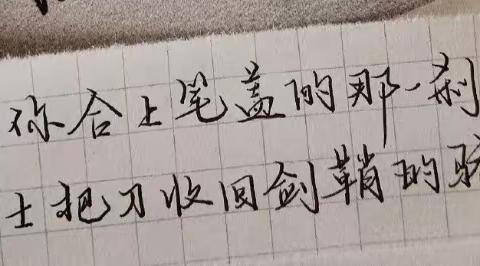 你合上笔盖的那一刹
士把刀收回剑鞘的骄